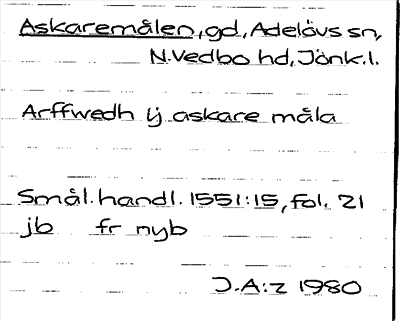 Askaremålen, gd, Adelövs sn,
N.Vedbo hd, Jönk.l.
Arffwedh ij askare måla
Smål. handl. 1551:15, fol. 21
jb fr nyb
J.A:z 1980